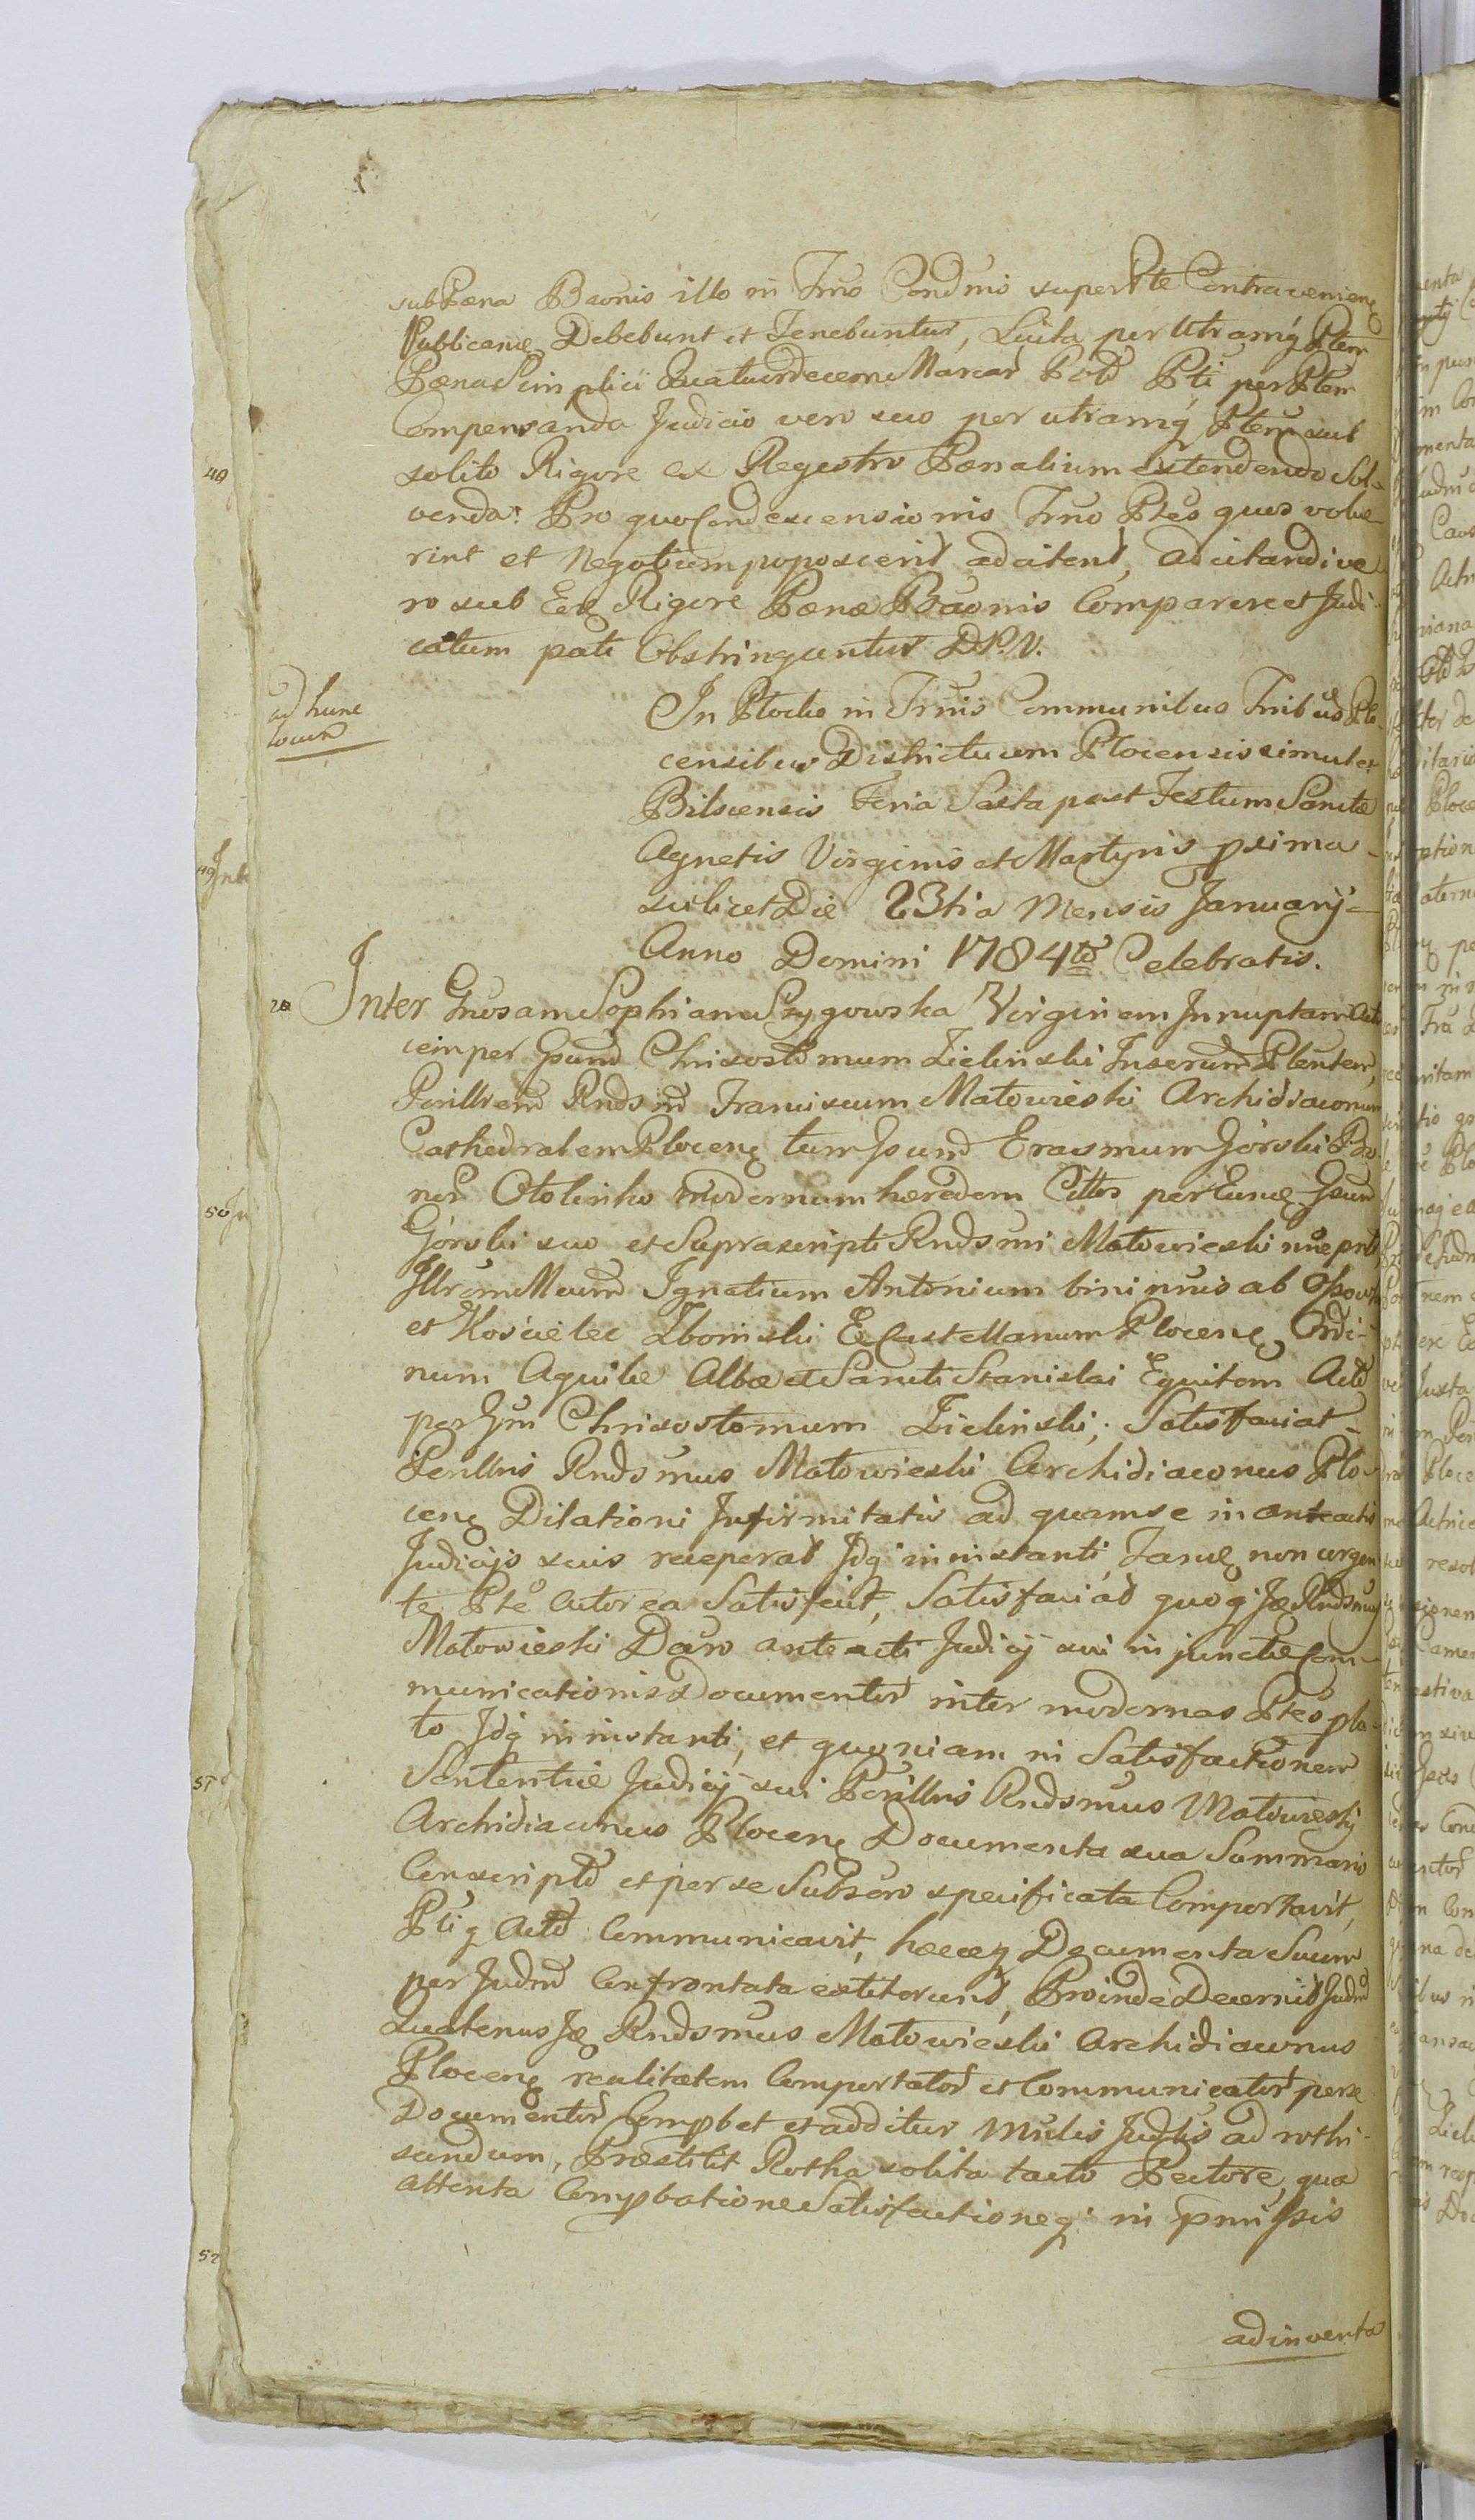 sub Pæna Baonis illo in Trno Condnis super Pte Contravenienę
Publicanę Debebunt et Tenebuntur, Luita per Utramq́ Ptem
Pæna Simplici Quatuordecem Marcar̃ Pold Pti per Ptem
Compensanda Judicio vero suo per utramq́ Ptem sub
solito Rigore ex Regestro Pænalium Extendendo Sol-
venda. Pro quo Condescensionis Trno Ptes quos volue-
rint et Negotium poposcerit adcitent, adcitandi ve
ro sub Eod Rigore Pænæ Baonis Comparere et Judi-
catum pati Obstringuntur D.P.V.
ad hunc
locum
In Plocko in Trnis Communibus Trnibus Plo-
censibus Districtuum Plocensis simul et
Bilscensis Feria Sexta post Festum Sanctæ
Agnetis Virginis et Martyris prima
scilicet Die 23tia Mensis January
Anno Domini 1784to Celebratis.
20 Inter Gnosam Sophiam Szygowska Virginem Innuptam Act
cem per Gsum Chrisostomum Zielinski Inserum Plentem,
Perillrem Rndsm Franciscum Matowieski Archidiaconum
Cathedralem Plocenę tum Gsum Erasmum Górski Bo-
nor̃ Otolinko modernum hæredem Cittos per Eund Gsum
Górski suo et Suprascripti Rndsmi Matowieski nne pntt
Illrem Mcum Ignatium Antonium bini nnis ab Ossowka
et Kościelec Zboinski Ex Castellanum Plocenę Ordi-
num Aquilæ Albæ et Sancti Stanislai Equitem Actt
per Gsm Chrisostomum Zielinski; Satisfaciat
Perillris Rndsmus Matowieski Archidiaconus Plo-
cenę Dilationi Infirmitatis ad quam se in anteactis
Judicijs suis receperat Idq́ in instanti, Tanę non urgen
te Pte Actorea Satisfecit, Satisfaciat quoq́ Id Rndsmus
Matowieski Dcto anteacti Judicij sui injunctæ Com-
municationis Documentor̃ inter modernas Ptes pla-
to Idq́ in instanti, et quoniam in Satisfactionem
Sententiæ Judicij sui Perillris Rndsmus Matowieski
Archidiaconus Plocenę Documenta sua Summario
Conscripto et per se Subscro specificata Comportavit,
Ptiq́ Acto Communicavit, hæcq́ Documenta Suum
per Judm Confrontata extiterunt, Proinde Decernit Judm
Quatenus Id Rndsmus Matowieski Archidiaconus
Plocenę realitatem Comportator̃ et Communicator̃ per se
Documentor̃ Compbet et additur Mnlis Judlis ad rothi-
sandum, Præstitit Rotha solita tacto Pectore, qua
attenta Compbatione Satisfactioneq́ in pmissis
adinventa
49
50
51
52